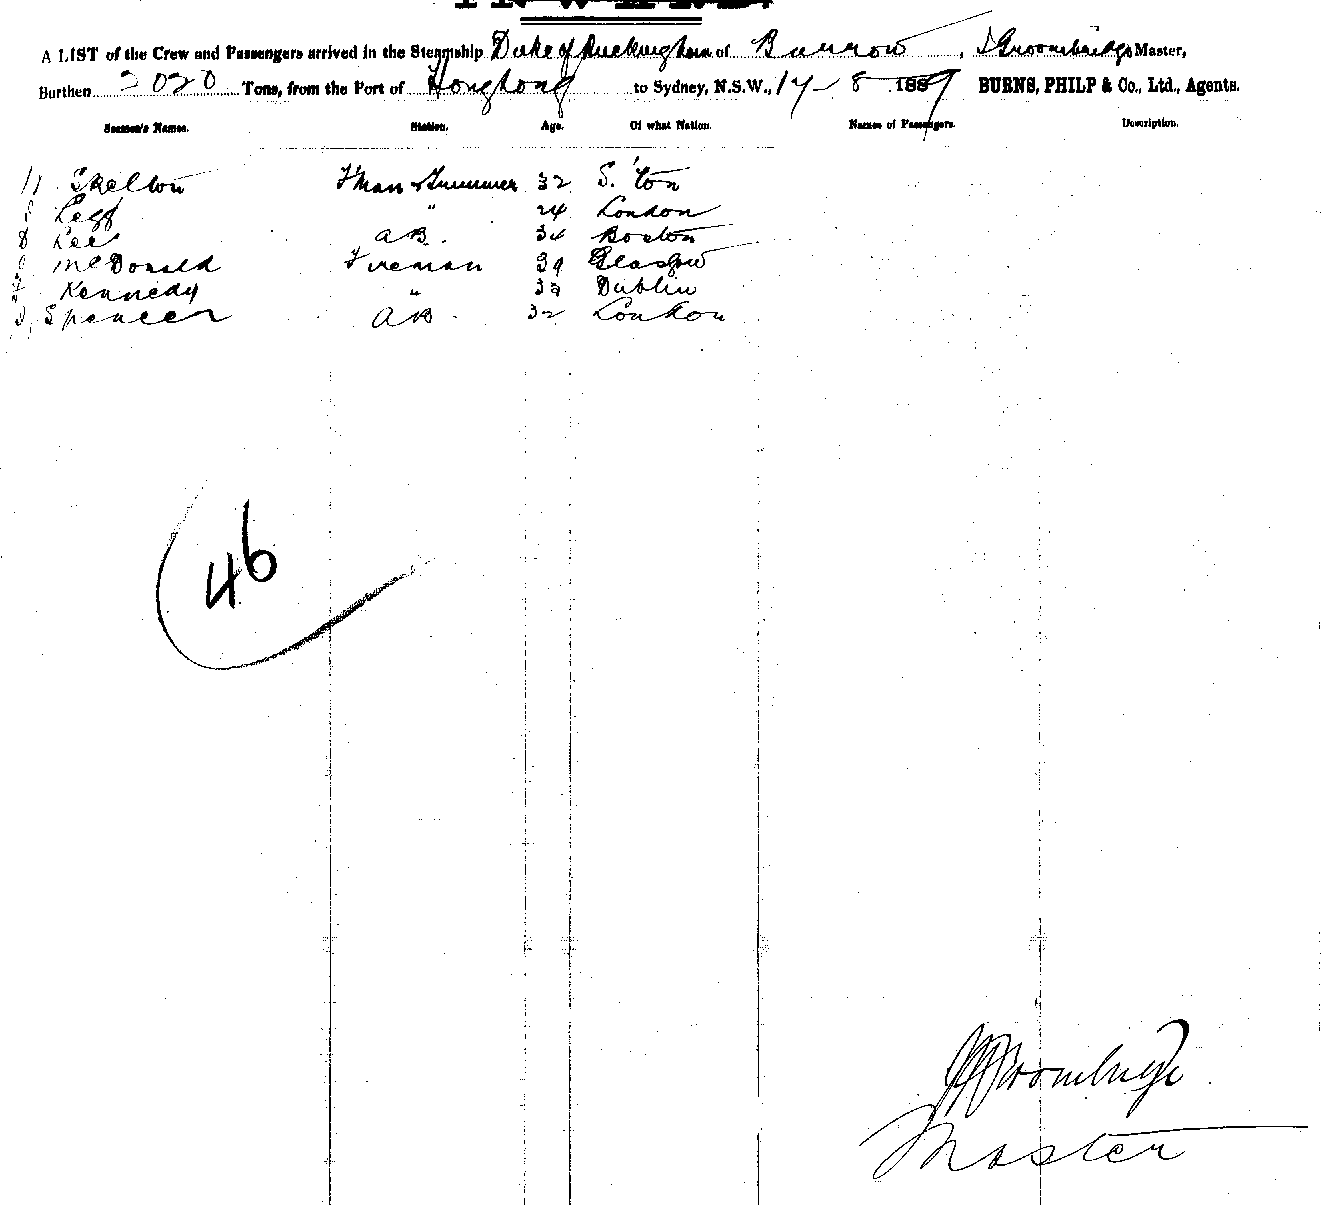 A LIST of the Crew and Passengers arrived in the Steamship Duke of Buckingham of Barrow, Groombridge Master,
Burthen 2020 Tons, from the Port of Hongkong to Sydney, N.S.W., 17-8 1889 BURNS, PHILP & Co., Ltd., Agents.
Seamen's Names. Station. Age. Of what Nation. Names of Passengers. Description.
Skelton F'man & Trimmer 32 S. 'ton
Legg " 24 London
Lee AB. 34 Boston
McDonald Fireman 39 Glasgow
Kennedy " Dublin
Spencer AB. 32 London
46
Groombridge
Master